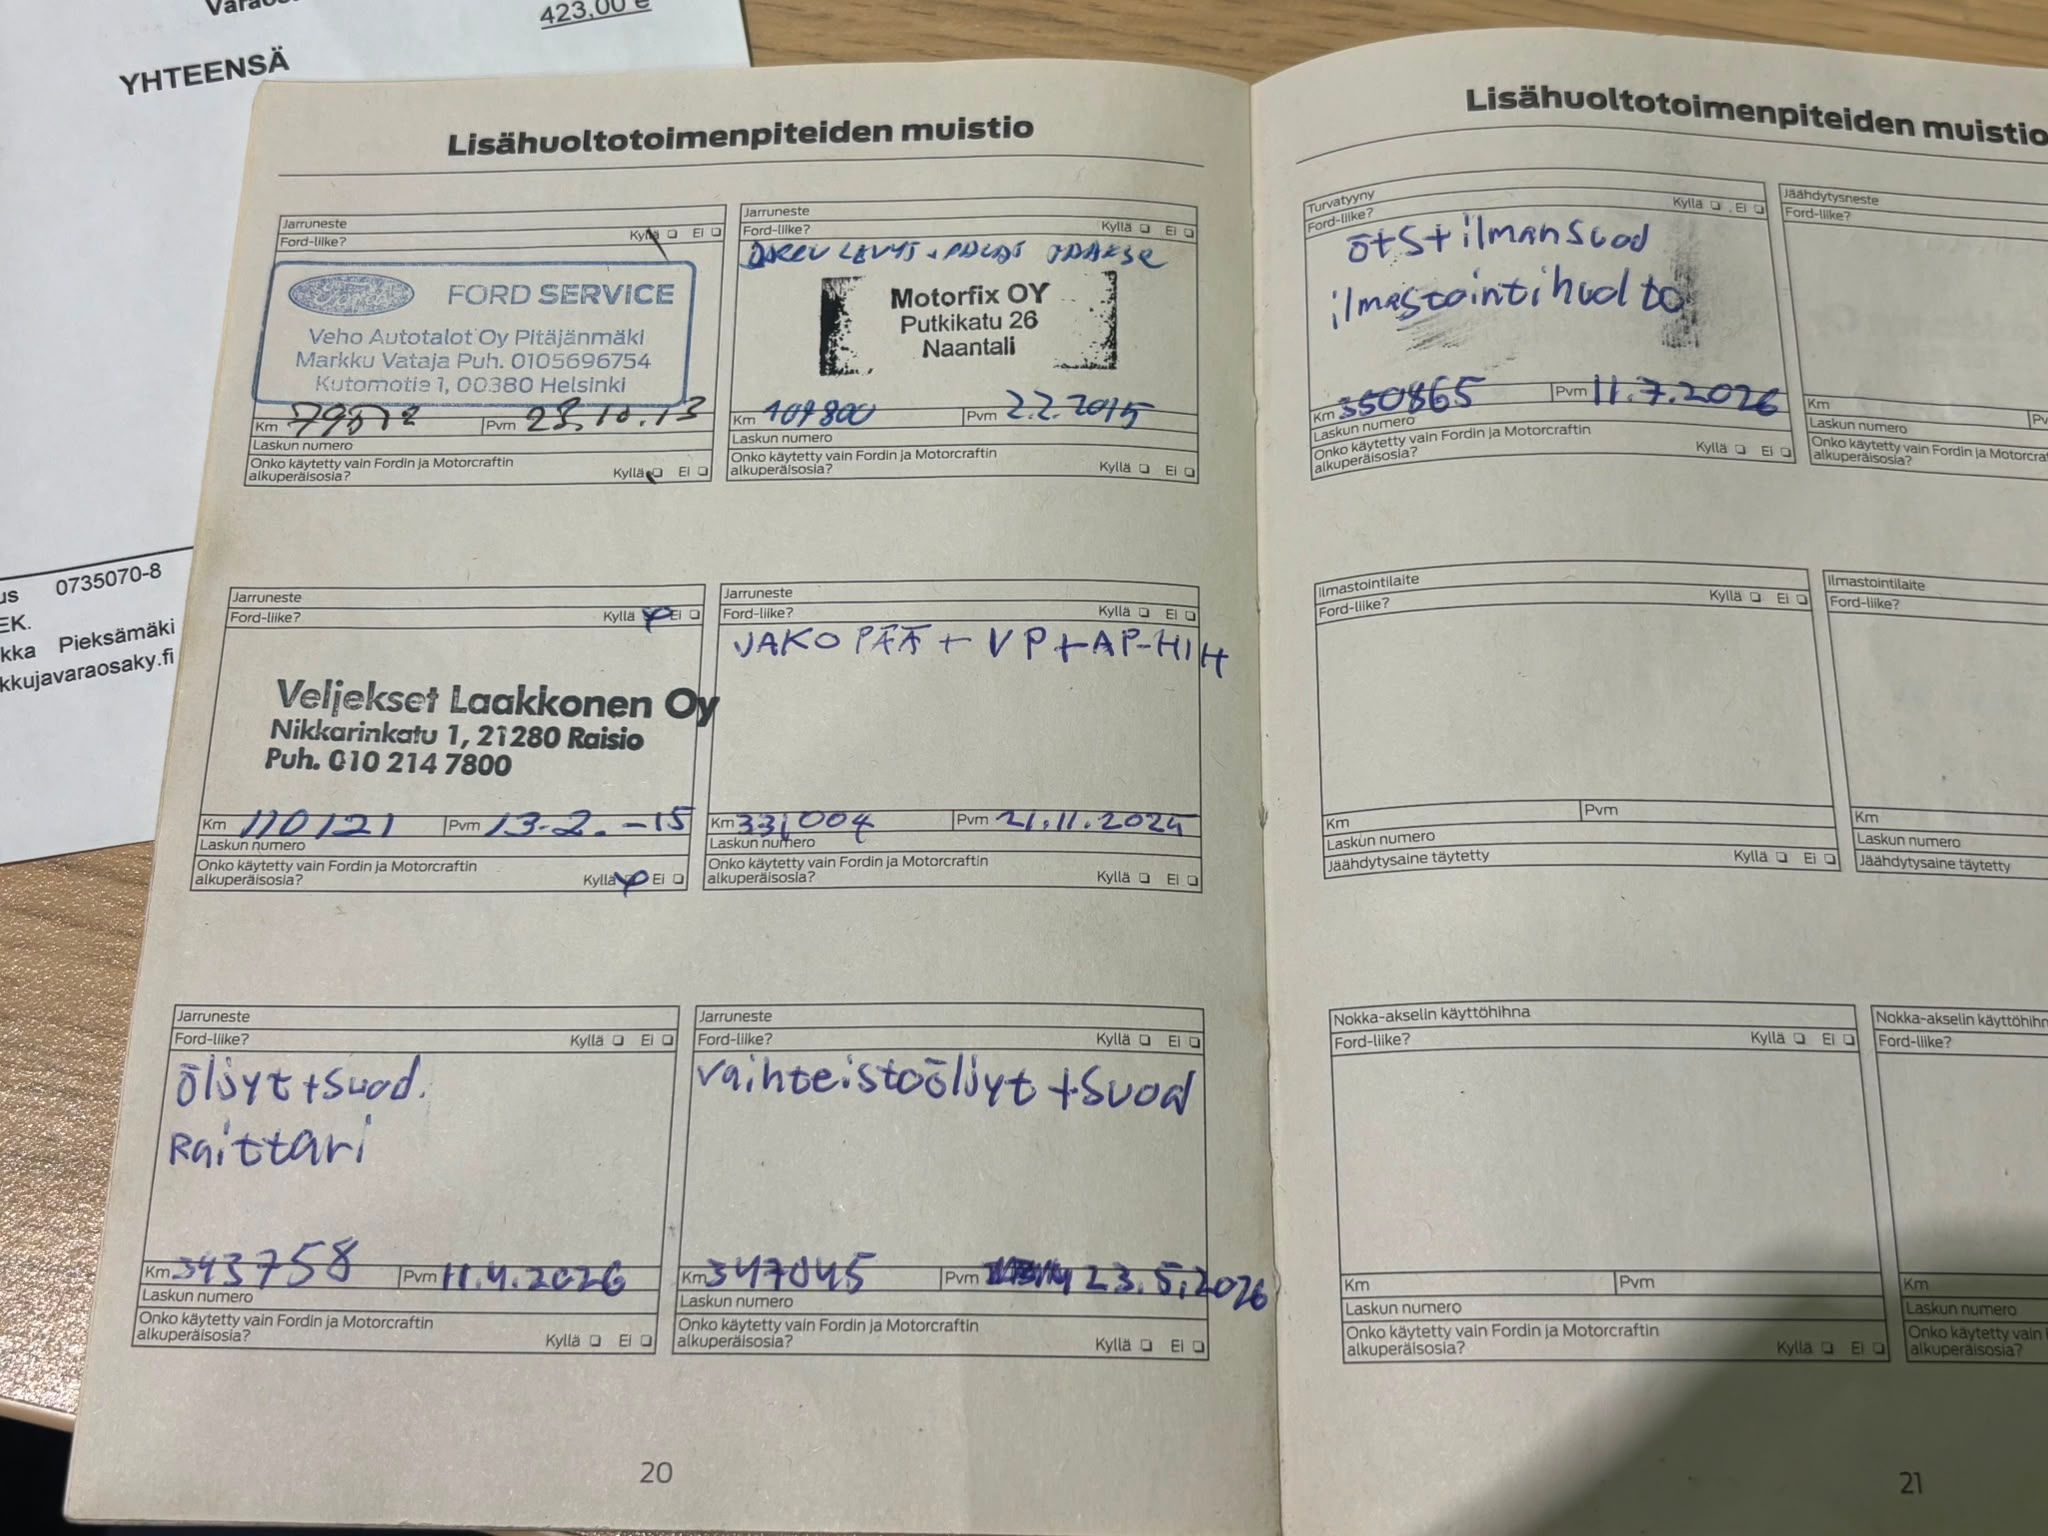 423,00 e
YHTEENSÄ
0735070-8
EK.
Pieksämäki
kkujavaraosaky.fi
Lisähuoltotoimenpiteiden muistio
Jarruneste
Ford-liike? Kyllä ❑ Ei ❑
FORD SERVICE
Veho Autotalot Oy Pitäjänmäki
Markku Vataja Puh. 0105696754
Kutomotie 1, 00380 Helsinki
Km 79572 Pvm 23.10.13
Laskun numero
Onko käytetty vain Fordin ja Motorcraftin
alkuperäisosia? Kyllä ❑ Ei ❑
Jarruneste
Ford-liike? Kyllä ❑ Ei ❑
JARRU LEVYT + PALAT
Motorfix OY
Putkikatu 26
Naantali
Km 109800 Pvm 2.2.2015
Laskun numero
Onko käytetty vain Fordin ja Motorcraftin
alkuperäisosia? Kyllä ❑ Ei ❑
Jarruneste
Ford-liike? Kyllä Ei ❑
Veljekset Laakkonen Oy
Nikkarinkatu 1, 21280 Raisio
Puh. 010 214 7800
Km 110121 Pvm 13.2.-15
Laskun numero
Onko käytetty vain Fordin ja Motorcraftin
alkuperäisosia? Kyllä Ei ❑
Jarruneste
Ford-liike? Kyllä ❑ Ei ❑
JAKO PÄÄ + VP+AP-HIH
Km 331004 Pvm 21.11.2025
Laskun numero
Onko käytetty vain Fordin ja Motorcraftin
alkuperäisosia? Kyllä ❑ Ei ❑
Jarruneste
Ford-liike? Kyllä ❑ Ei ❑
öljyt+suod.
Raittari
Km 343758 Pvm 11.4.2026
Laskun numero
Onko käytetty vain Fordin ja Motorcraftin
alkuperäisosia? Kyllä ❑ Ei ❑
Jarruneste
Ford-liike? Kyllä ❑ Ei ❑
vaihteistoöljyt +suod
Km 347045 Pvm 23.5.2026
Laskun numero
Onko käytetty vain Fordin ja Motorcraftin
alkuperäisosia? Kyllä ❑ Ei ❑
20
Lisähuoltotoimenpiteiden muistio
Turvatyyny
Ford-liike? Kyllä ❑ Ei ❑
ö+s+ilmansuod
ilmastointihuolto
Km 350865 Pvm 11.7.2026
Laskun numero
Onko käytetty vain Fordin ja Motorcraftin
alkuperäisosia? Kyllä ❑ Ei ❑
Jäähdytysneste
Ford-liike?
Km
Laskun numero
Onko käytetty vain Fordin ja
alkuperäisosia?
Ilmastointilaite
Ford-liike? Kyllä ❑ Ei ❑
Km Pvm
Laskun numero
Jäähdytysaine täytetty Kyllä ❑ Ei ❑
Ilmastointilaite
Ford-liike?
Km
Laskun numero
Jäähdytysaine täytetty
Nokka-akselin käyttöhihna
Ford-liike? Kyllä ❑ Ei ❑
Km Pvm
Laskun numero
Onko käytetty vain Fordin ja Motorcraftin
alkuperäisosia? Kyllä ❑ Ei ❑
Nokka-akselin
Ford-liike?
Km
Laskun numero
Onko käytetty vain Fordin ja
alkuperäisosia?
21